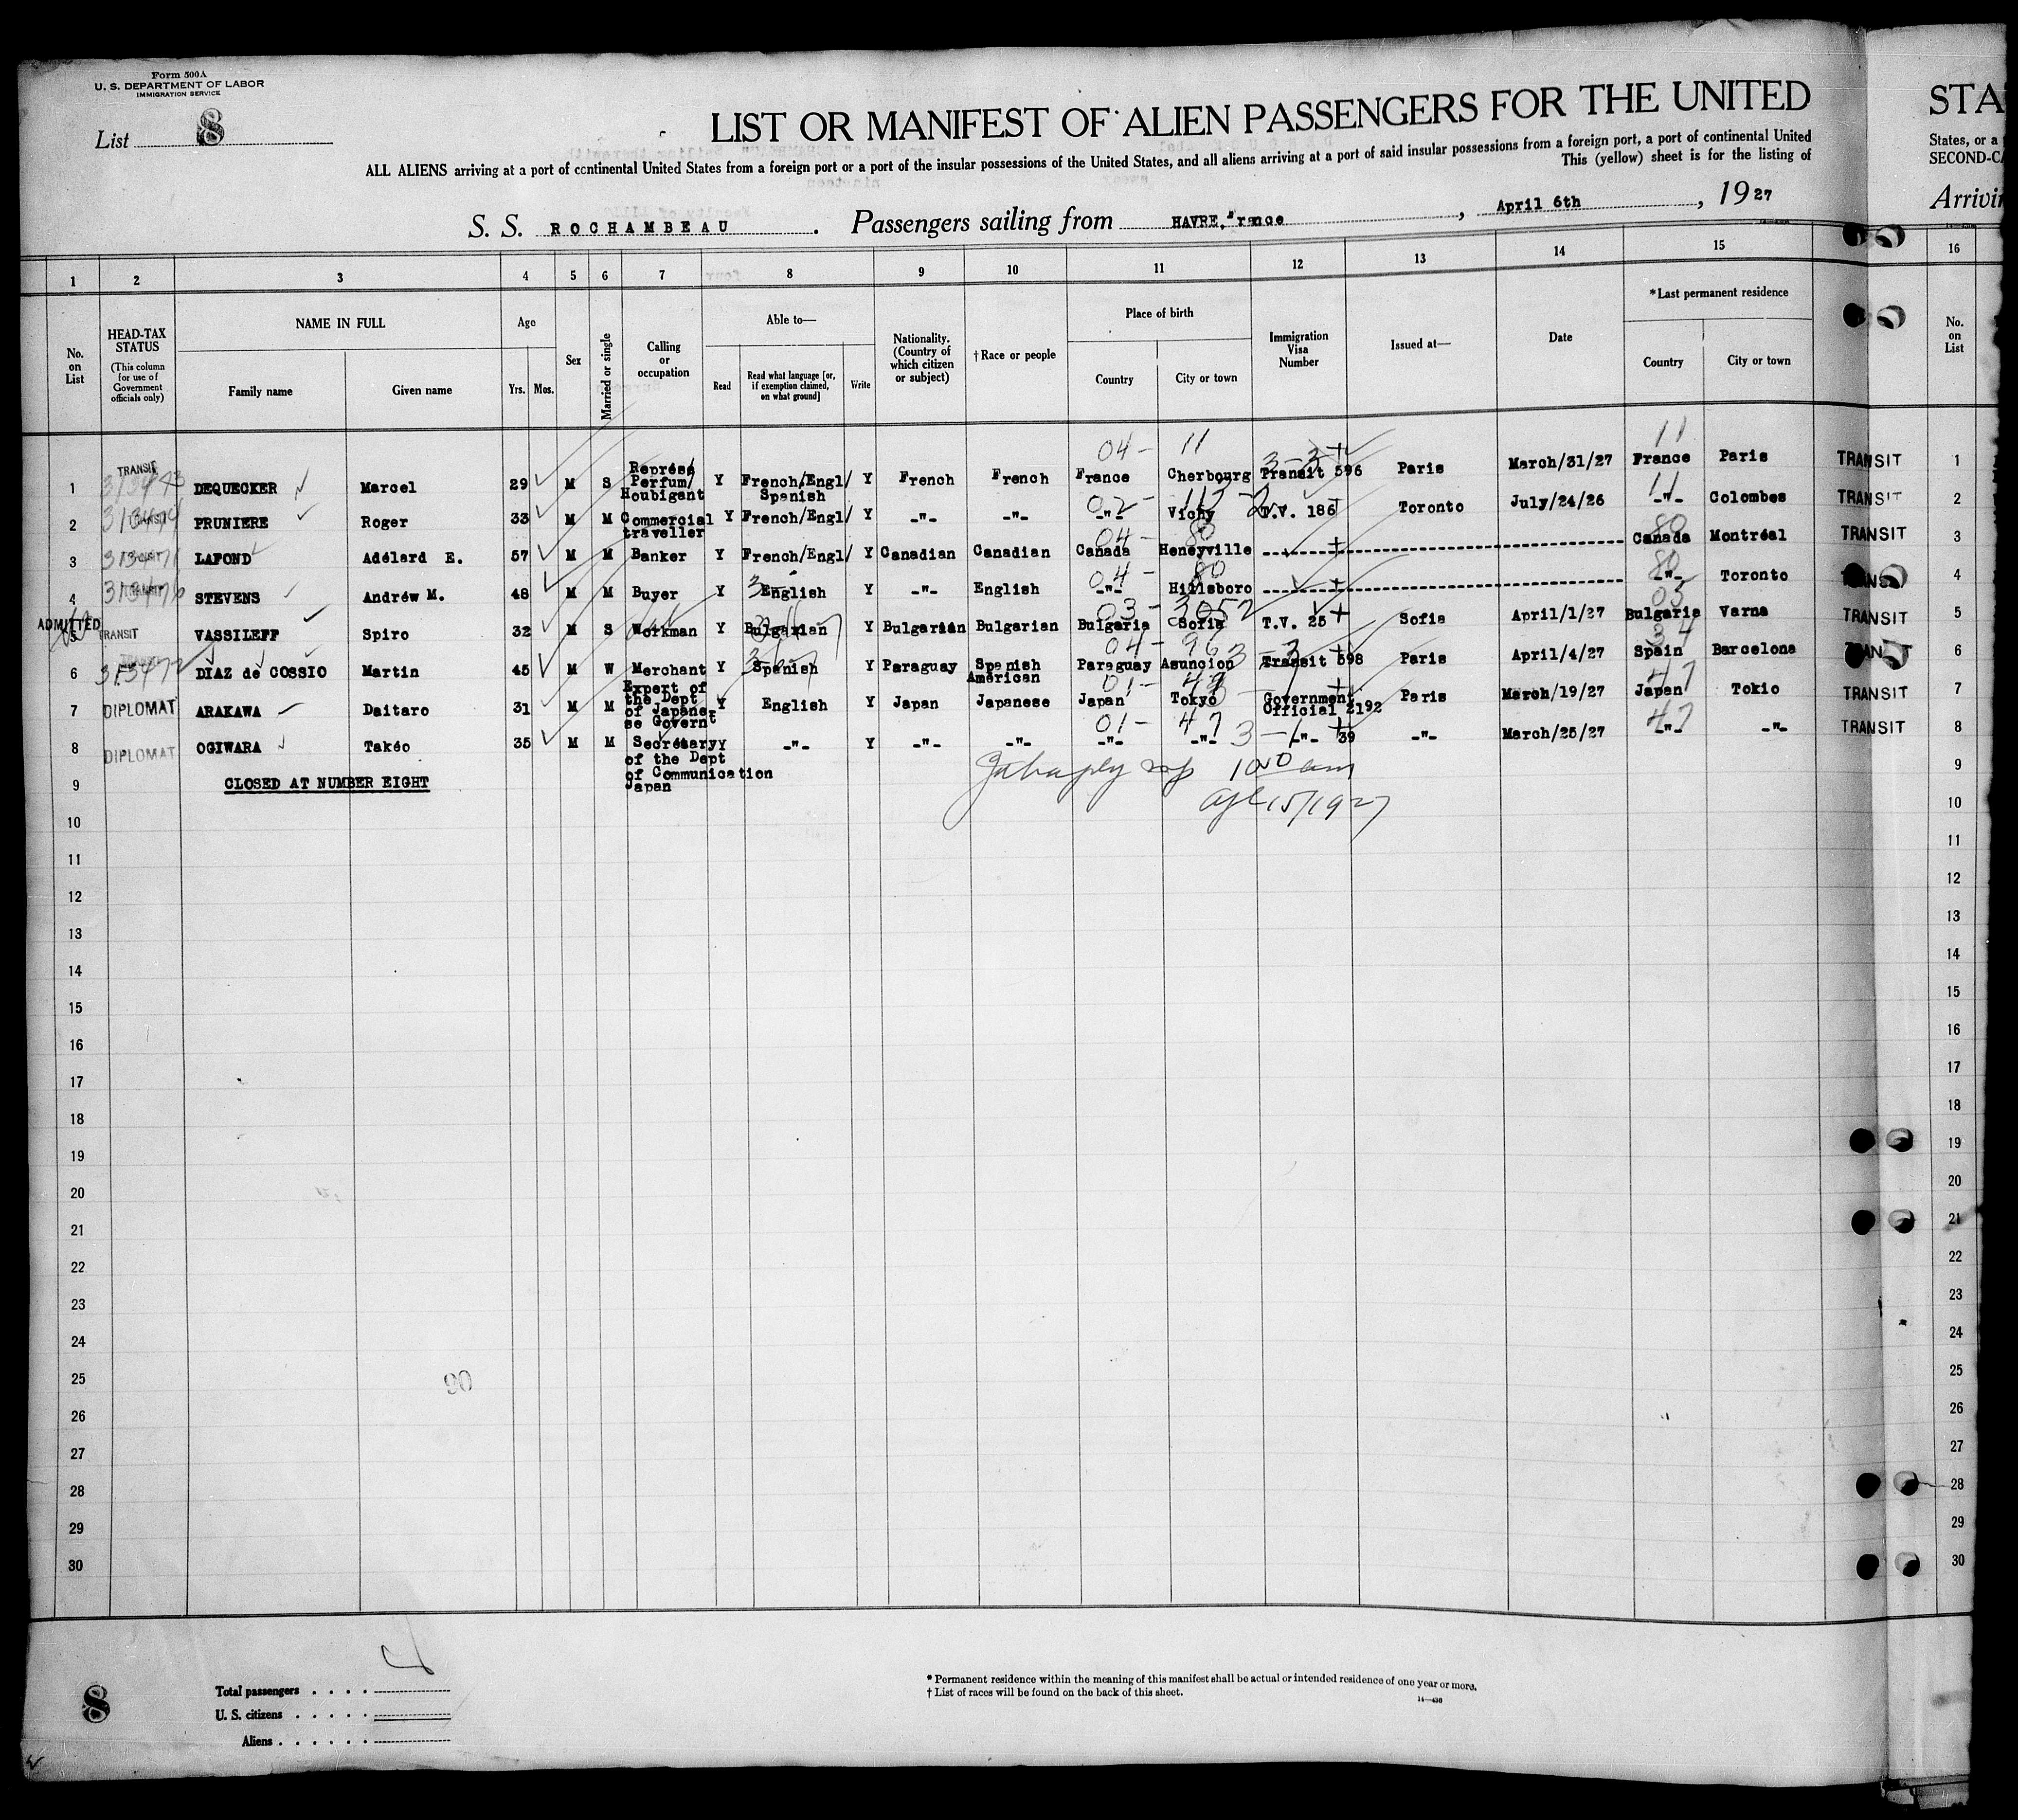 Form 500A
U. S. DEPARTMENT OF LABOR
IMMIGRATION SERVICE
List 8
LIST OR MANIFEST OF ALIEN PASSENGERS FOR THE UNITED
STA
ALL ALIENS arriving at a port of continental United States from a foreign port or a port of the insular possessions of the United States, and all aliens arriving at a port of said insular possessions from a foreign port, a port of continental United
States, or a
This (yellow) sheet is for the listing of
SECOND-CA
S. S. ROCHAMBEAU. Passengers sailing from HAVRE, France, April 6th, 1927
Arrivin
1 2 3 4 5 6 7 8 9 10 11 12 13 14 15 16
No. on List
HEAD-TAX STATUS
(This column for use of Government officials only)
NAME IN FULL
Family name
Given name
Age
Yrs. Mos.
Sex
Married or single
Calling or occupation
Able to—
Read
Read what language [or, if exemption claimed, on what ground]
Write
Nationality. (Country of which citizen or subject)
† Race or people
Place of birth
Country
City or town
Immigration Visa Number
Issued at—
Date
*Last permanent residence
Country
City or town
No. on List
04- 11 3-3 11
1 TRANSIT DEQUECKER Marcel 29 M S Représ/ Perfum/ Houbigant Y French/Engl/ Spanish Y French French France Cherbourg Transit 596 Paris March/31/27 France Paris TRANSIT 1
02- 11 11
2 TRANSIT PRUNIERE Roger 33 M M Commercial traveller Y French/Engl/ Y -"- -"- -"- Vichy T.V. 186 Toronto July/24/26 -"- Colombes TRANSIT 2
04- 80 80
3 313471 LAFOND Adélard E. 57 M M Banker Y French/Engl/ Y Canadian Canadian Canada Heneyville Canada Montréal TRANSIT 3
04- 80 80
4 313476 STEVENS Andréw M. 48 M M Buyer Y English Y -"- English -"- Hillsboro -"- Toronto TRANSIT 4
03- 03
ADMITTED
5 TRANSIT VASSILEFF Spiro 32 M S Workman Y Bulgarian Y Bulgarian Bulgarian Bulgaria Sofia T.V. 25 Sofia April/1/27 Bulgaria Varna TRANSIT 5
04- 96 3-3 34
6 313472 DIAZ de COSSIO Martin 45 M W Merchant Y Spanish Y Paraguay Spanish American Paraguay Asuncion Transit 598 Paris April/4/27 Spain Barcelona TRANSIT 6
01- 47 47
7 DIPLOMAT ARAKAWA Daitaro 31 M M Expert of the Dept of Japanese Governt Y English Y Japan Japanese Japan Tokyo Government Official 2192 Paris March/19/27 Japan Tokio TRANSIT 7
01- 47 3-1 47
8 DIPLOMAT OGIWARA Takéo 35 M M Secretary of the Dept of Communication Japan Y -"- Y -"- -"- -"- -"- -"- 39 -"- March/25/27 -"- -"- TRANSIT 8
9 CLOSED AT NUMBER EIGHT 9
10 10
11 11
12 12
13 13
14 14
15 15
16 16
17 17
18 18
19 19
20 20
21 21
22 22
23 23
24 24
25 25
26 26
27 27
28 28
29 29
30 30
90
8
Total passengers
U. S. citizens
Aliens
* Permanent residence within the meaning of this manifest shall be actual or intended residence of one year or more.
† List of races will be found on the back of this sheet.
14—430